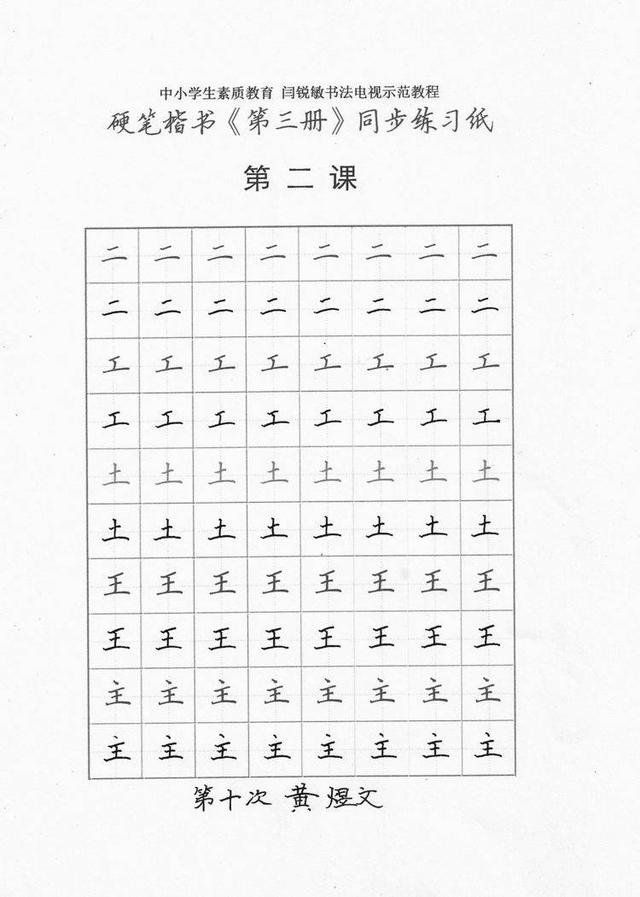 中小学生素质教育 闫锐敏书法电视示范教程
硬笔楷书《第三册》同步练习纸
第二课
二二二二二二二二
二二二二二二二二
工工工工工工工工
工工工工工工工工
土土土土土土土土
土土土土土土土土
王王王王王王王王
王王王王王王王王
主主主主主主主主
主主主主主主主主
第十次 黄煜文